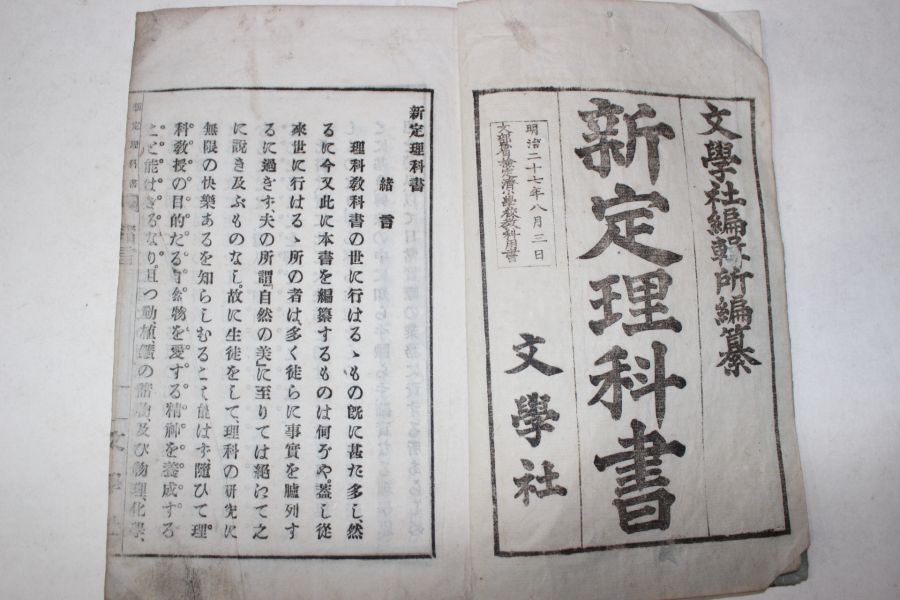 文學社編輯所編纂
新定理科書
明治二十七年八月三日
文部省檢定濟小學校敎科用書
文學社
新定理科書
緒言
理科敎科書の世に行はるゝもの旣に甚た多し、然
るに今又此に本書を編纂するものは何ろや、蓋し從
來世に行はるゝ所の者は、多く徒らに事實を臚列す
るに過きす、夫の所謂「自然の美」に至りては絕いて之
に說き及ふものなし。故に生徒をして理科の硏究に
無限の快樂あるを知らしむること能はす、隨ひて理
科敎授の目的たる自然物を愛する精神を養成する
こと能はさるなり。且つ動植鑛の諸物及ひ物理、化學、
新定理科書
緒言